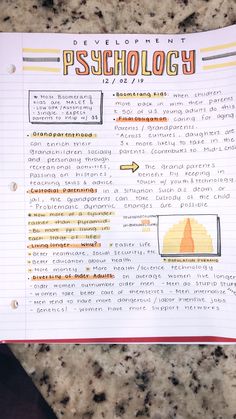 DEVELOPMENT
PSYCHOLOGY
12/02/19
* Most Boomerang
Kids are MALES &
Low SPA/Autonomy
- Single - expect
parents to help w/ $$
• Boomerang Kids: when children
move back in with their parents
⅓ of US young adults do this
• Filial obligation: caring for aging
Parents / grandparents.
* Across cultures, daughters are
3x more likely to take in the
parents (contributes to Mid-L
• Grandparenthood:
can enrich their
Grandchildren socially
and personally through
recreational activities,
Passing on histories,
teaching skills & advice.
→ The Grandparents
benefit by keeping in
touch w/ youth & technology
• Custodial Parenting: in a situation such as death or
jail, the grandparents can take custody of the child
- Problematic dynamic changes are possible
* Now more of a cylinder
* Living longer... Why?
* Easier life
* Better healthcare, Social Security, etc
* Better education about health
* More money * More health/science technology
* POPULATION PYRAMID
• Diversity of Older Adults: on average women live longer
- Older women outnumber older men - Men do stupid stuff
- Women take better care of themselves - Men internalize
- Men tend to have more dangerous / labor intensive jobs
- Genetics! - Women have more support networks